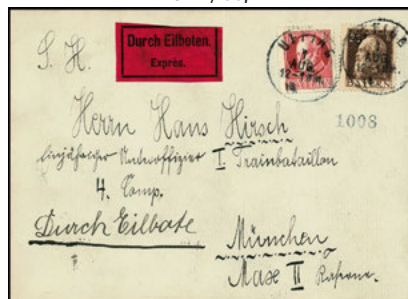 Durch Eilboten.
Exprès.
UTTING
AUG
12-1 Nm.
BAYERN
UTTING
AUG
BAYERN
S. H.
Herrn Hans Hirsch
1008
Einjähriger Unteroffizier I. Trainbataillon
4. Comp.
Durch Eilbote
München
Max II Kaserne.